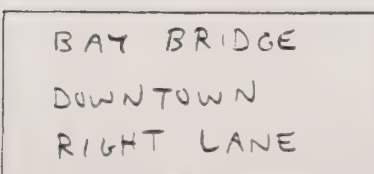 BAY BRIDGE
DOWNTOWN
RIGHT LANE